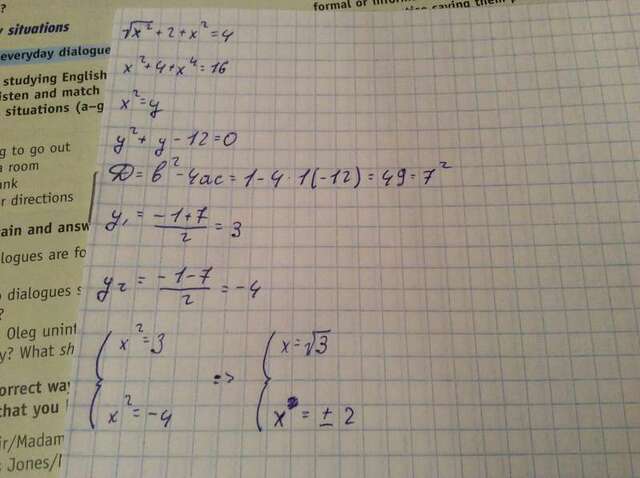 formal or
y situations
everyday dialogue
studying English
isten and match
situations (a–g
g to go out
a room
nk
r directions
ain and answ
logues are fo
o dialogues s
?
Oleg unint
y? What sh
orrect way
that you
ir/Madam
s Jones/
√x² + 2 + x² = 4
x² + 4 + x⁴ = 16
x² = y
y² + y - 12 = 0
D = b² - 4ac = 1 - 4 · 1(-12) = 49 = 7²
y₁ = (-1+7)/2 = 3
y₂ = (-1-7)/2 = -4
{ x² = 3 => { x = √3
{ x² = -4 { x = ± 2